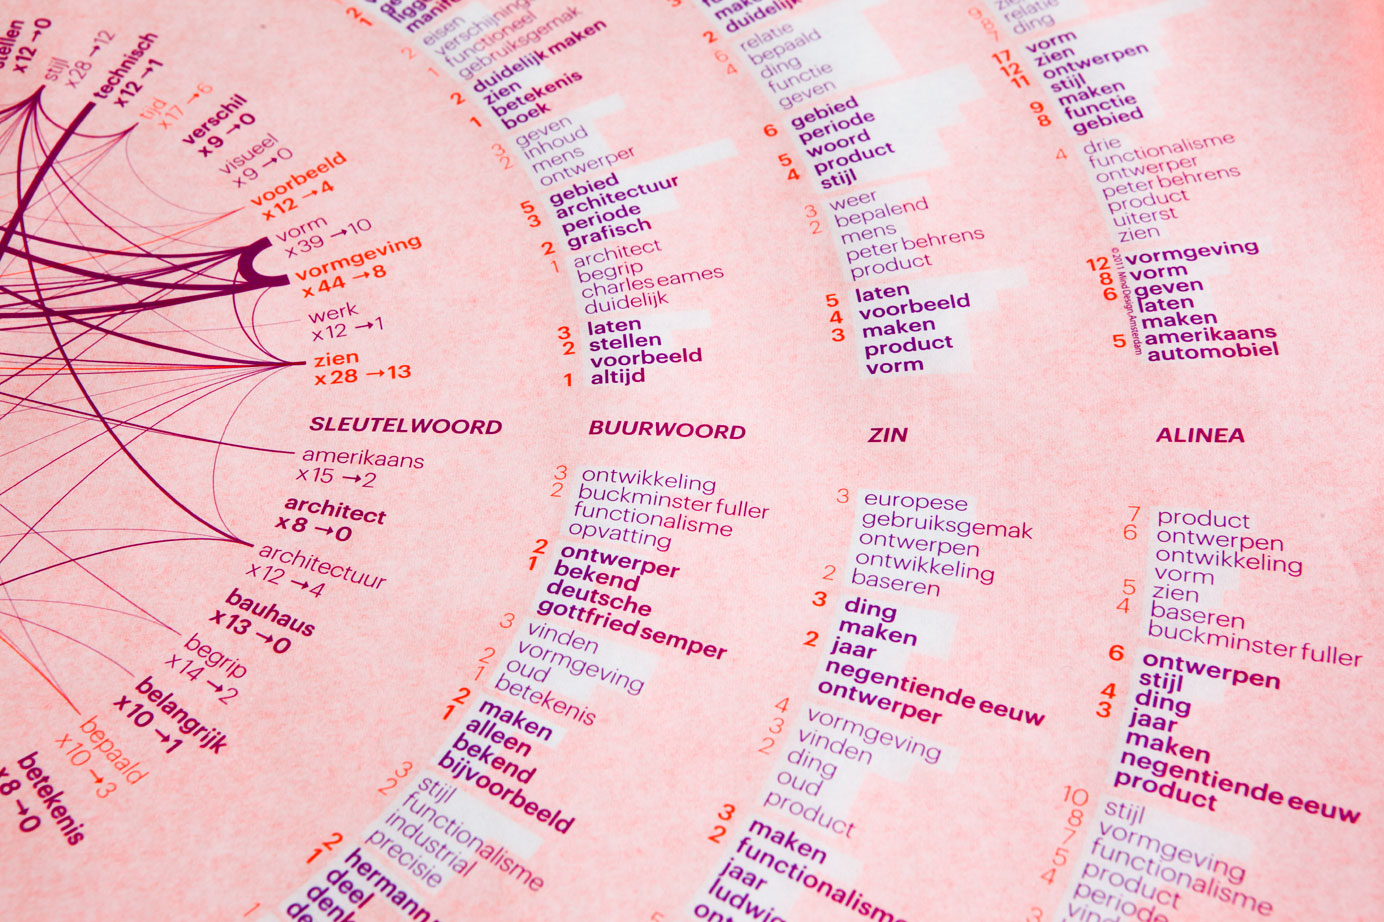 stellen
x12→0
stijl
x28→12
technisch
x12→1
tijd
x17→6
verschil
x9→0
visueel
x9→0
voorbeeld
x12→4
vorm
x39→10
vormgeving
x44→8
werk
x12→1
zien
x28→13
SLEUTELWOORD
amerikaans
x15→2
architect
x8→0
architectuur
x12→4
bauhaus
x13→0
begrip
x14→2
belangrijk
x10→1
bepaald
x10→3
betekenis
x8→0
eisen
2 verschijning
functioneel
1 gebruiksgemak
duidelijk maken
2 zien
betekenis
1 boek
geven
3 inhoud
2 mens
ontwerper
gebied
5 architectuur
3 periode
2 grafisch
1 architect
begrip
charles eames
duidelijk
3 laten
2 stellen
voorbeeld
1 altijd
BUURWOORD
3 ontwikkeling
2 buckminster fuller
functionalisme
opvatting
2 ontwerper
1 bekend
deutsche
gottfried semper
3 vinden
vormgeving
2 oud
1 betekenis
2 maken
1 alleen
bekend
bijvoorbeeld
3 stijl
2 functionalisme
industrial
precisie
2 hermann
1 deel
duidelijk
2 relatie
bepaald
6 ding
4 functie
geven
gebied
6 periode
woord
5 product
4 stijl
3 weer
2 bepalend
mens
peter behrens
product
5 laten
4 voorbeeld
3 maken
product
vorm
ZIN
3 europese
gebruiksgemak
ontwerpen
ontwikkeling
2 baseren
3 ding
maken
2 jaar
negentiende eeuw
ontwerper
4 vormgeving
3 vinden
2 ding
oud
product
3 maken
2 functionalisme
jaar
relatie
ding
vorm
17 zien
12 ontwerpen
11 stijl
maken
9 functie
8 gebied
drie
4 functionalisme
ontwerper
peter behrens
product
uiterst
zien
12 vormgeving
8 vorm
6 geven
laten
maken
5 amerikaans
automobiel
©2011 Mind Design Amsterdam
ALINEA
7 product
6 ontwerpen
ontwikkeling
vorm
5 zien
4 baseren
buckminster fuller
6 ontwerpen
stijl
4 ding
3 jaar
maken
negentiende eeuw
product
10 stijl
8 vormgeving
7 functionalisme
5 product
4 periode